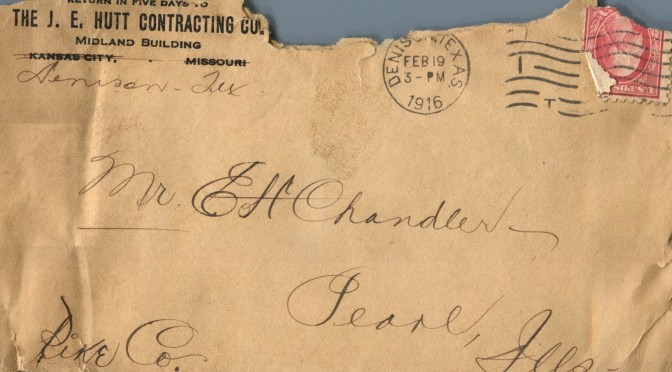 RETURN IN FIVE DAYS TO
THE J. E. HUTT CONTRACTING CO.
MIDLAND BUILDING
KANSAS CITY, . MISSOURI
Denison - Tex
DENISON, TEXAS
FEB 19
3-PM
1916
T
Mr. E H Chandler
Pearl, Ills-
Pike Co.